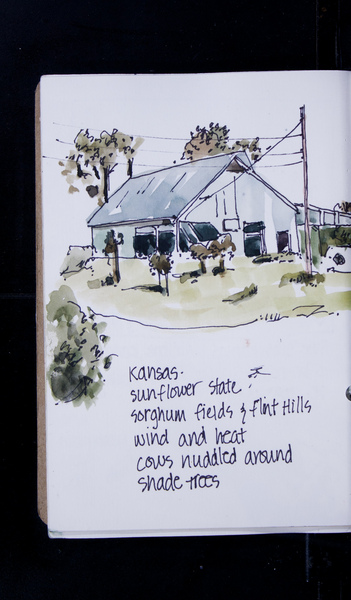 Kansas.
sunflower state
sorghum fields & Flint Hills
wind and heat
cows nuddled around
shade trees